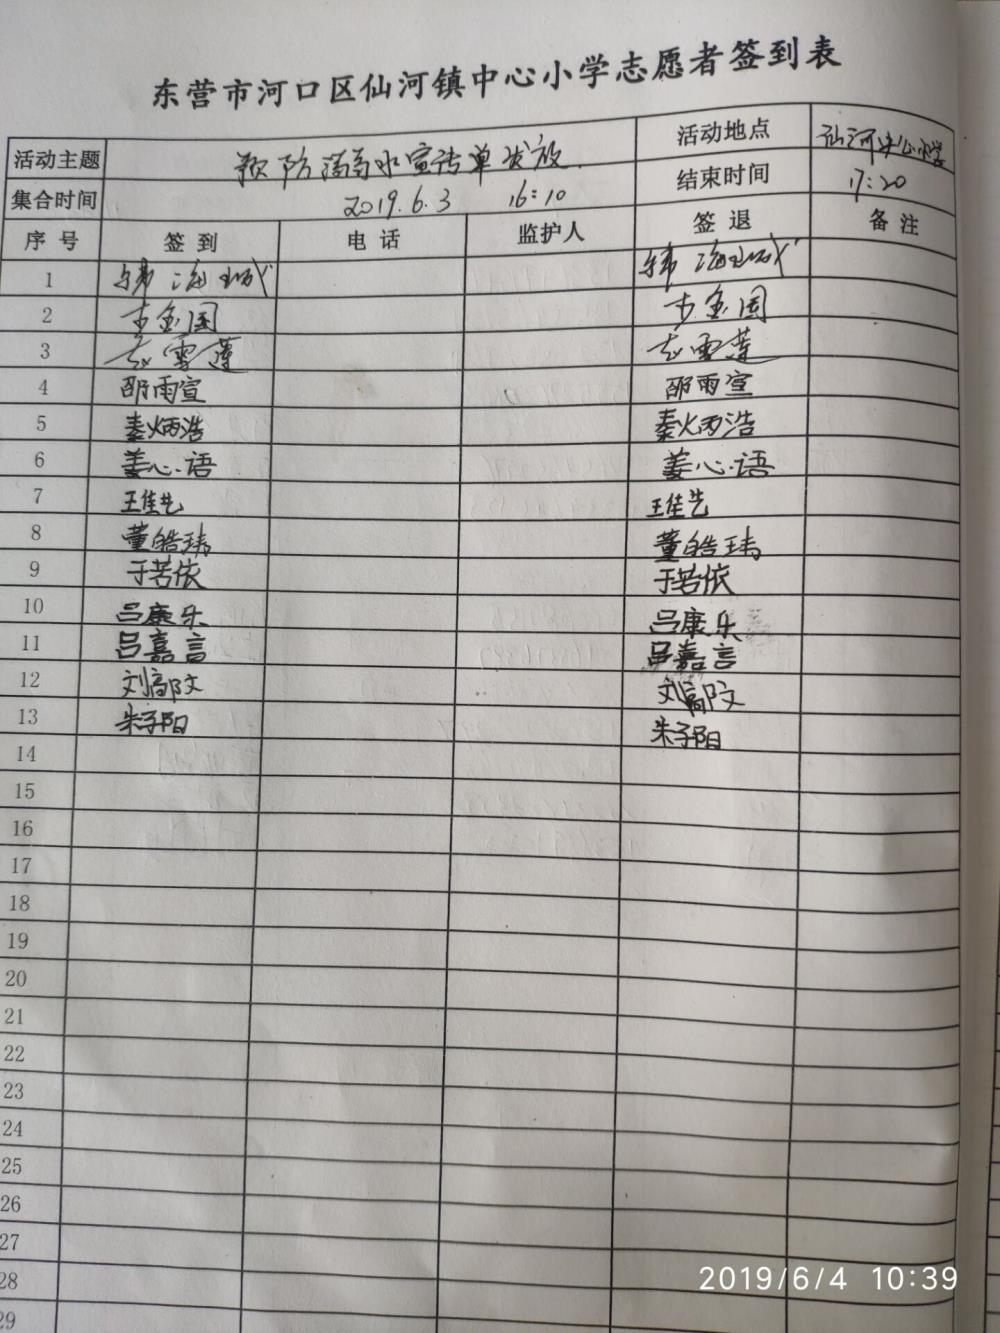 东营市河口区仙河镇中心小学志愿者签到表
活动主题 预防溺水宣传单发放 活动地点 仙河中心小学
集合时间 2019.6.3 16:10 结束时间 17:20
序号 签到 电话 监护人 签退 备注
1 韩海斌 韩海斌
2
3 赵雪莲 赵雪莲
4 邵雨宣 邵雨宣
5 秦炳浩 秦炳浩
6 姜心语 姜心语
7 王佳艺 王佳艺
8 董皓玮 董皓玮
9 于若依 于若依
10 吕康乐 吕康乐
11 吕嘉言 吕嘉言
12 刘高阳文 刘高阳文
13 朱子阳 朱子阳
14
15
16
17
18
19
20
21
22
23
24
25
26
27
28
29
2019/6/4 10:39